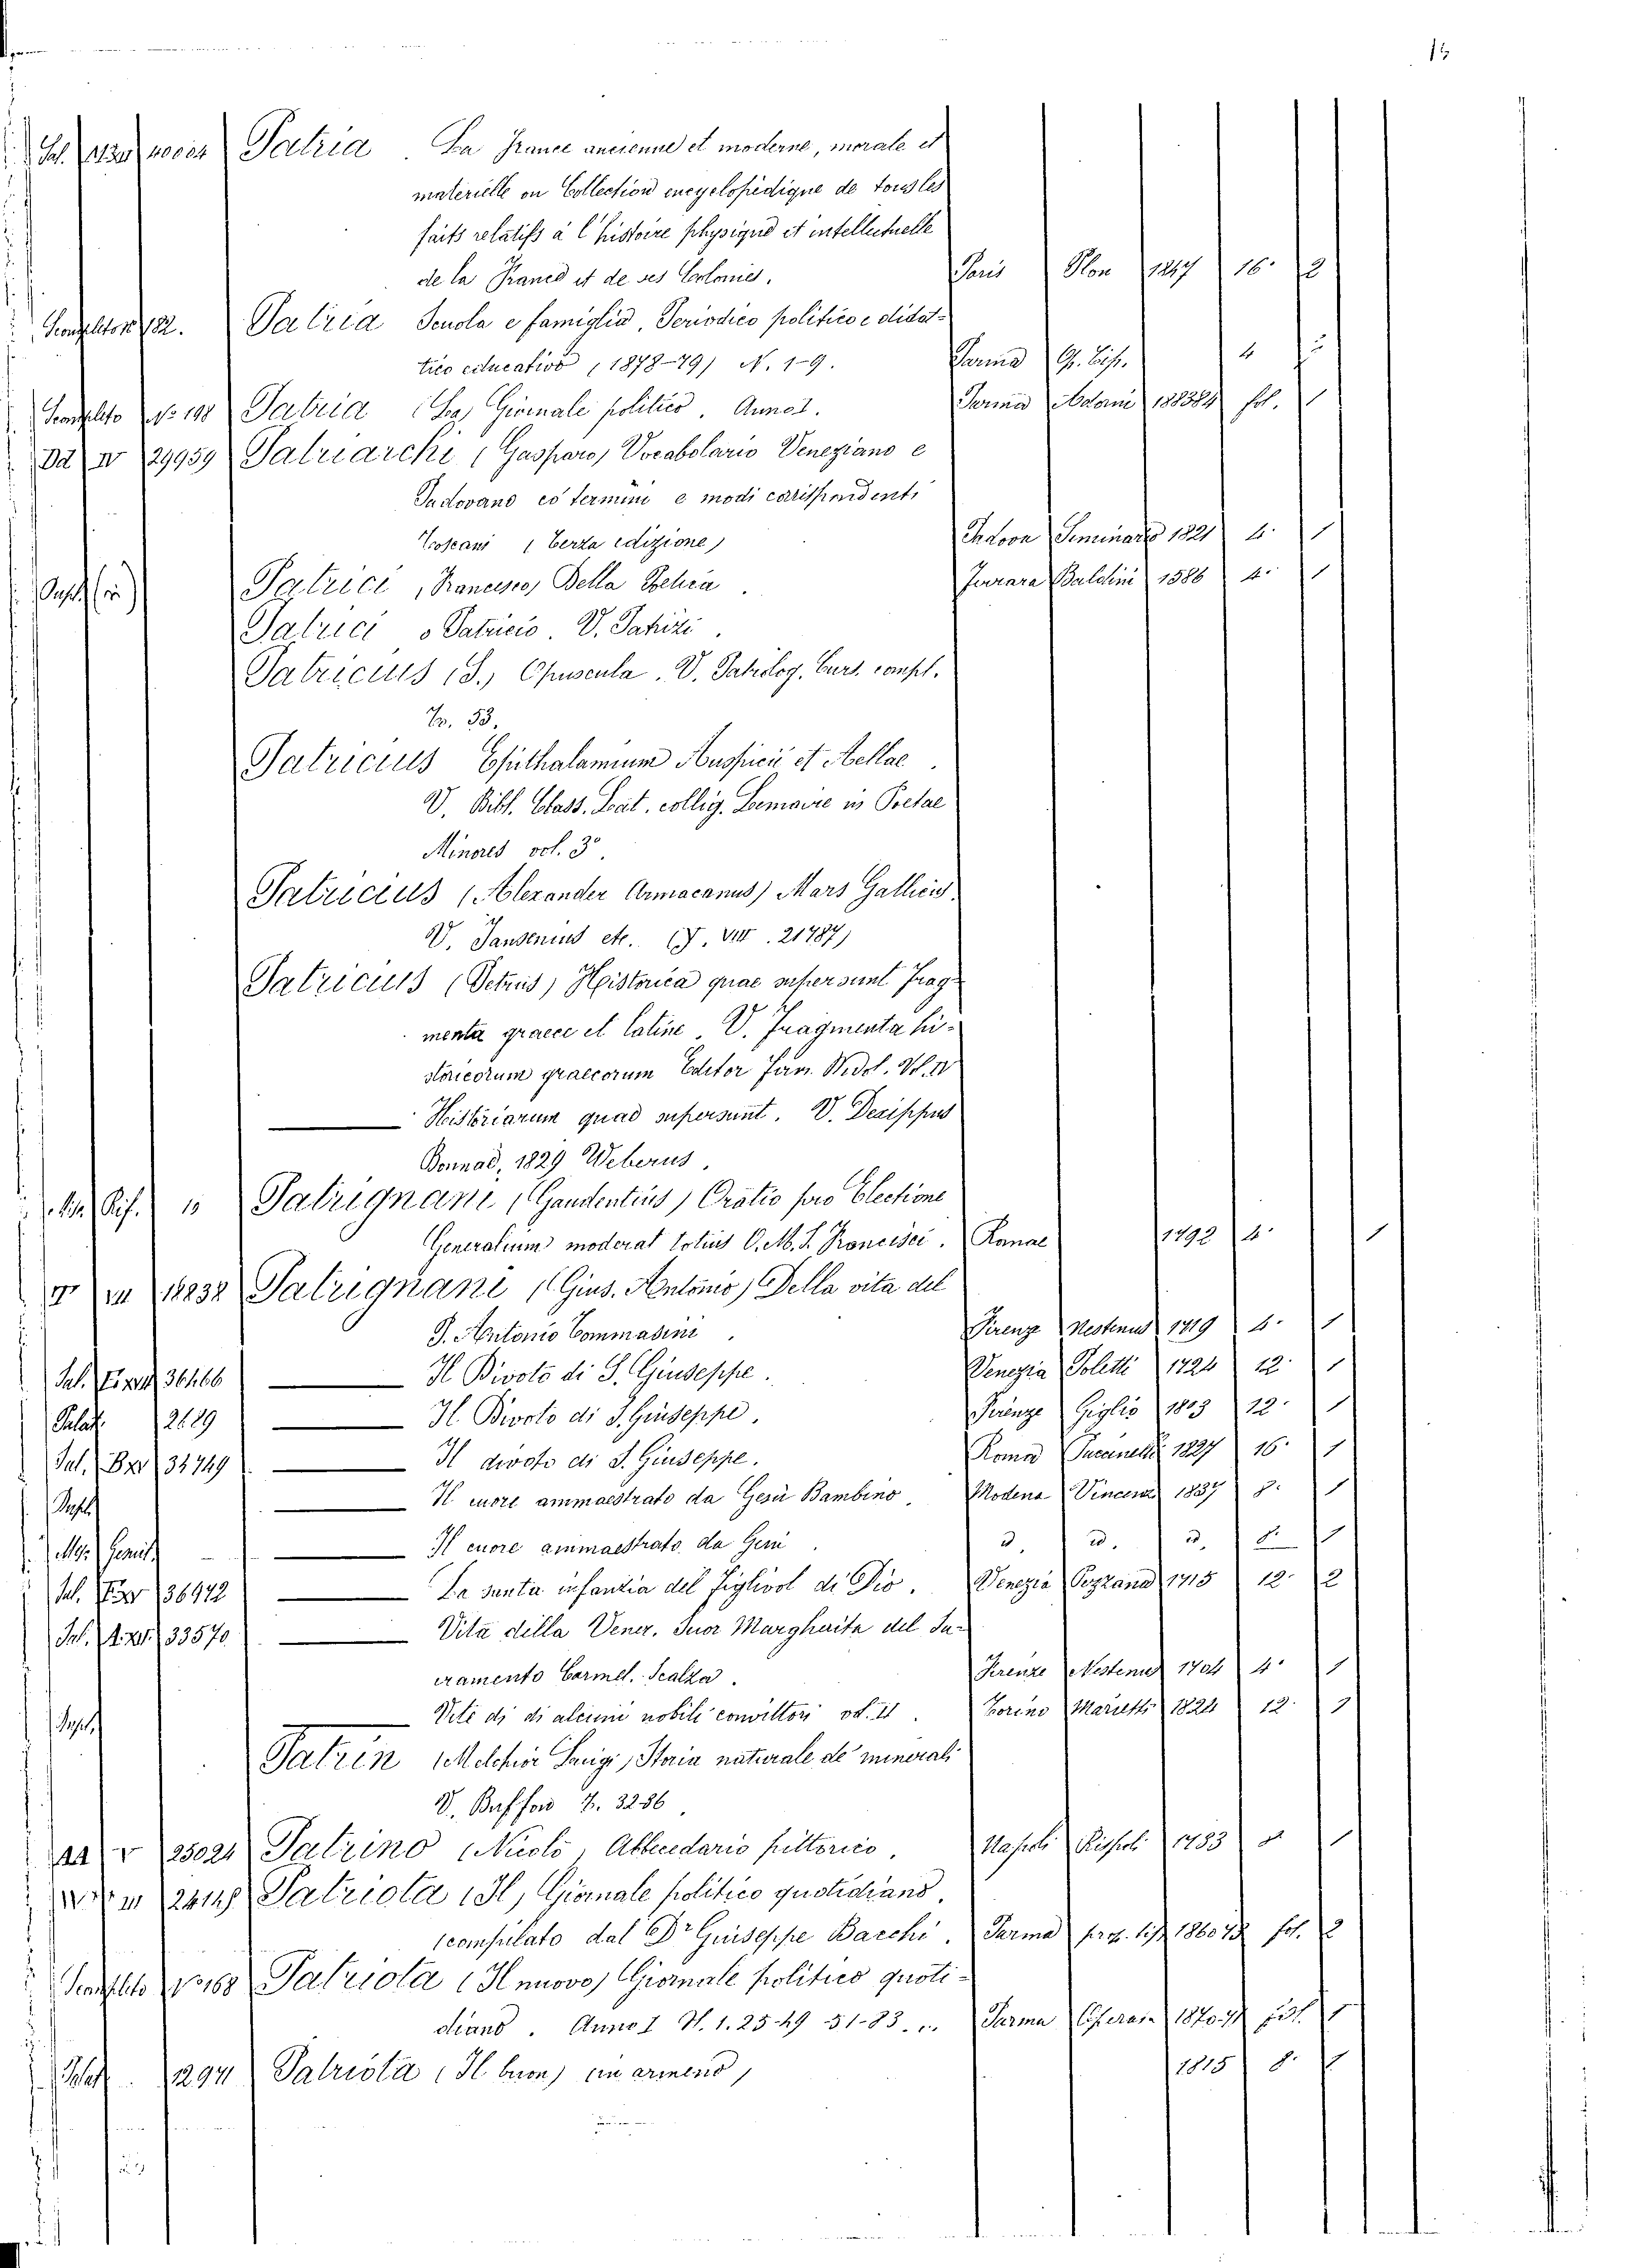 15
Patria. La France ancienne et moderne, morale et
materielle ou Collection encyclopédique de tous les
faits relatifs à l'histoire physique et intellectuelle
de la France et de ses Colonies. Paris Plon 1847 16. 2
Patria Scuola e famiglia, Periodico politico e didat-
tico educativo (1878-79) N. 1-9. Parma 4
Scaffaletto N. 198 Patria (La) Giornale politico. Anno I. Parma Adorni 188384 fol. 1
Dd IV 29959 Patriarchi (Gasparo) Vocabolario Veneziano e
Padovano co' termini e modi corrispondenti
Toscani (Terza edizione) Padova Seminario 1821 4. 1
Patrici (Francesco) Della Retica. Ferrara Baldini 1586 4. 1
Patrici o Patricio. V. Patrizi.
Patricius (S.) Opuscula. V. Patrolog. Curs. compl.
Tr. 53.
Patricius Epithalamium Auspicii et Aellae.
V. Bibl. Class. Lat. collig. Lemaire in Poetae
Minores vol. 3°.
Patricius (Alexander Armacanus) Mars Gallicus.
V. Jansenius etc. (VIII. 21787)
Patricius (Petrus) Historica quae supersunt Frag-
menta graece et latine. V. Fragmenta hi-
storicorum graecorum Editor Didot. Vol. IV
Historiarum quae supersunt. V. Dexippus
Bonnae, 1829 Weberus.
Patrignani (Gaudentius) Oratio pro Electione
Generalium moderat totius O. M. S. Francisci. Romae 1792 4. 1
VII 18232 Patrignani (Gius. Antonio) Della vita del
P. Antonio Tommasini. Firenze Nestenus 1719 4. 1
Pal. 36466 Il Divoto di S. Giuseppe. Venezia Poletti 1724 12. 1
Palat. 2689 Il Divoto di S. Giuseppe. Firenze Giglio 1803 12. 1
Pal. 34749 Il divoto di S. Giuseppe. Roma 1827 16. 1
Il cuore ammaestrato da Gesù Bambino. Modena Vincenzi 1837 8. 1
Il cuore ammaestrato da Gesù id. id. id. 8. 1
Pal. 36972 La santa infanzia del Figlivol di Dio. Venezia Pezzana 1715 12. 2
Pal. 33570 Vita della Vener. Suor Margharita del Sa-
cramento Carmel. Scalza. Firenze Nestenus 1704 4. 1
Vite di di alcuni nobili convittori vol. II. Torino Marietti 1824 12.
Patrin (Melchior Luigi) Storia naturale de' minerali
V. Buffon T. 32-36
AA V 25024 Patrino (Nicolò) Abbecedario pittorico. Napoli Rispoli 1783 8 1
III 24148 Patriota (Il) Giornale politico quotidiano.
(compilato dal Dr Guiseppe Bacchi. Parma 1860 fol. 2
Scaffaletto N° 168 Patriota (Il nuovo) Giornale politico quoti-
diano. Anno I N. 1. 25-49 51-83. Parma 1870-71 fol. 1
Palat. 12941 Patriota (Il buon) 1815 8. 1